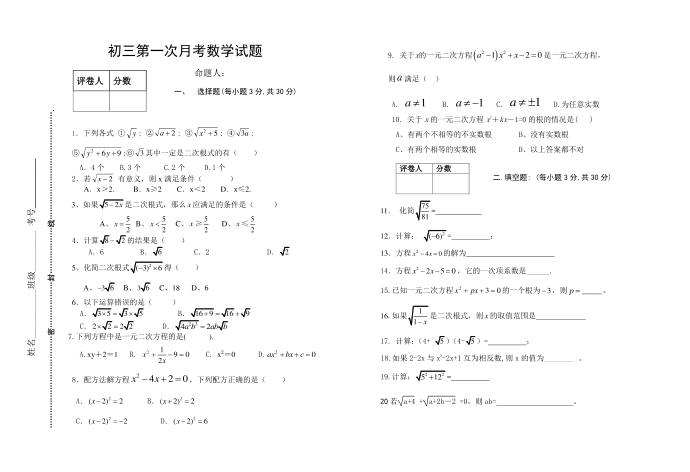 初三第一次月考数学试题
命题人：
评卷人 分数
一、 选择题(每小题 3 分,共 30 分)
1. 下列各式 ①√y ; ②√(a+2) ; ③√(x²+5) ; ④√(3a) ;
⑤√(y²+6y+9) ;⑥√3 其中一定是二次根式的有（ ）
A. 4 个 B.3 个 C.2 个 D.1 个
2. 若√(x−2) 有意义，则 x 满足条件（ ）
A. x＞2. B. x≥2 C. x＜2 D. x≤2.
3、如果√(5−2x) 是二次根式，那么 x 应满足的条件是（ ）
A、x=5/2 B、x<5/2 C、x≥5/2 D、x≤5/2
4. 计算√8−√2 的结果是（ ）
A. 6 B. √6 C. 2 D. √2
5、化简二次根式√((−3)²×6) 得（ ）
A、−3√6 B、3√6 C、18 D、6
6. 以下运算错误的是（ ）
A. √(3×5)=√3×√5 B. √(16+9)=√16+√9
C. 2×√2=2√2 D. √(4a²b³)=2ab√b
7.下列方程中是一元二次方程的是( ).
A.xy＋2＝1 B. x²+1/(2x)−9=0 C. x²＝0 D. ax²+bx+c=0
8. 配方法解方程 x²−4x+2=0，下列配方正确的是（ ）
A．(x−2)²=2 B．(x+2)²=2
C．(x−2)²=−2 D．(x−2)²=6
9. 关于x的一元二次方程(a²−1)x²+x−2=0是一元二次方程,
则 a 满足（ ）
A. a≠1 B. a≠−1 C. a≠±1 D.为任意实数
10. 关于 x 的一元二次方程 x²＋kx－1=0 的根的情况是( )
A、有两个不相等的不实数根 B、没有实数根
C、有两个相等的实数根 D、以上答案都不对
评卷人 分数
二.填空题:（每小题 3 分,共 30 分）
11． 化简√(75/81)=____________
12．计算： √((−6)²)=__________;
13．方程 x²−4x=0 的解为____________________
14．方程 x²−2x−5=0，它的一次项系数是______.
15. 已知一元二次方程 x²+px+3=0 的一个根为−3，则 p=_____。
16. 如果√(1/(1−x)) 是二次根式，则 x 的取值范围是____________
17. 计算：（4+ √5）（4-√5）=__________；
18.如果 2−2x 与 x²−2x+1 互为相反数,则 x 的值为________ 。
19.计算：√(5²+12²)=____________
20若√(a+4) +√(a+2b－2) =0，则 ab=____________________。
姓名________班级________考号________
密
封
线